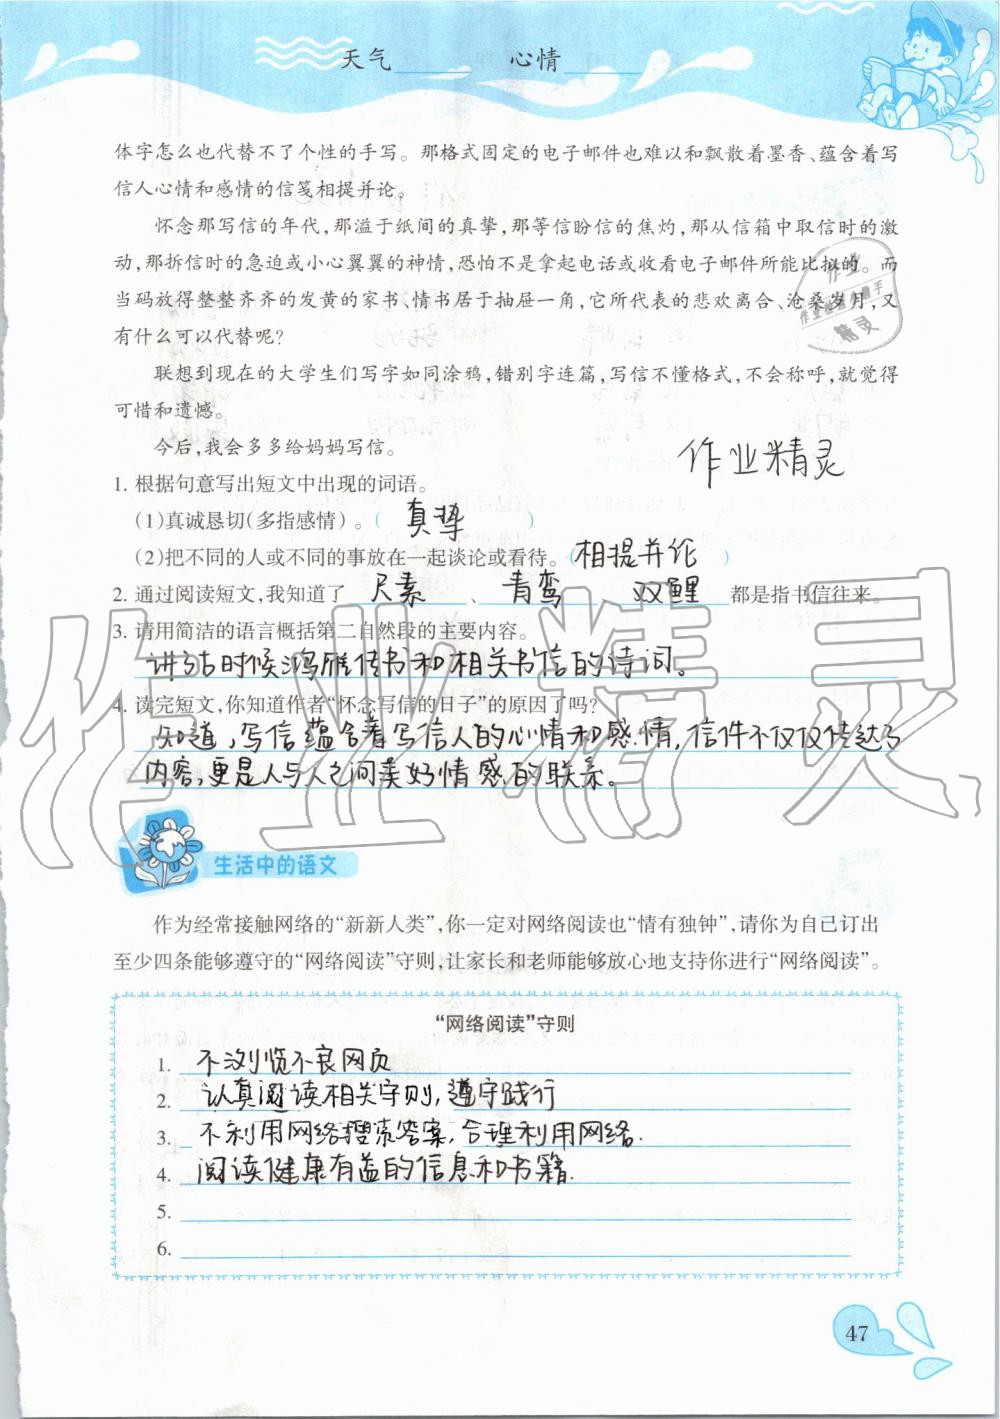 天气　　　心情
体字怎么也代替不了个性的手写。那格式固定的电子邮件也难以和飘散着墨香、蕴含着写
信人心情和感情的信笺相提并论。
怀念那写信的年代，那溢于纸间的真挚，那等信盼信的焦灼，那从信箱中取信时的激
动，那拆信时的急迫或小心翼翼的神情，恐怕不是拿起电话或收看电子邮件所能比拟的。而
当码放得整整齐齐的发黄的家书、情书居于抽屉一角，它所代表的悲欢离合、沧桑岁月，又
有什么可以代替呢?
联想到现在的大学生们写字如同涂鸦，错别字连篇，写信不懂格式，不会称呼，就觉得
可惜和遗憾。
今后，我会多多给妈妈写信。
作业精灵
1. 根据句意写出短文中出现的词语。
(1)真诚恳切(多指感情)。( 真挚 )
(2)把不同的人或不同的事放在一起谈论或看待。( 相提并论 )
2. 通过阅读短文，我知道了 尺素 、 青鸾 双鲤 都是指书信往来。
3. 请用简洁的语言概括第二自然段的主要内容。
讲述古时候鸿雁传书和相关书信的诗词。
4. 读完短文，你知道作者“怀念写信的日子”的原因了吗?
知道，写信蕴含着写信人的心情和感情，信件不仅仅传达了
内容，更是人与人之间美好情感的联系。
作业精灵
生活中的语文
作为经常接触网络的“新新人类”，你一定对网络阅读也“情有独钟”，请你为自己订出
至少四条能够遵守的“网络阅读”守则，让家长和老师能够放心地支持你进行“网络阅读”。
“网络阅读”守则
1. 不浏览不良网页
2. 认真阅读相关守则，遵守践行
3. 不利用网络搜索答案，合理利用网络.
4. 阅读健康有益的信息和书籍.
5.
6.
47